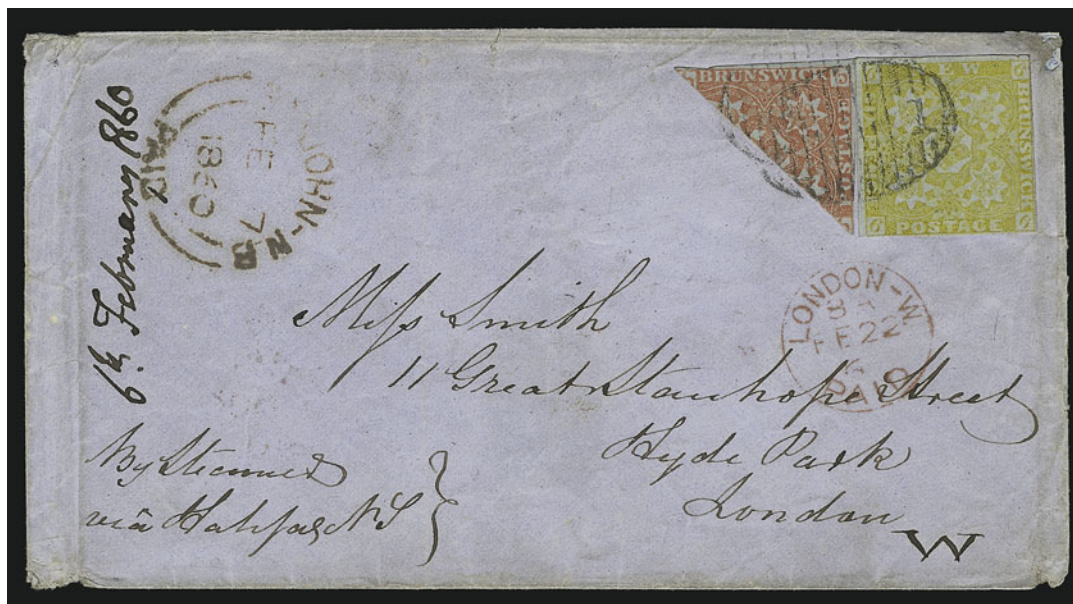 6th February 1860
PAID
JOHN-N.B
FE
7
1860
BRUNSWICK
POSTAGE
EW
BRUNSWICK
POSTAGE
LONDON-W
FE 22
PAID
Miss Smith
11 Great Stanhope Street
Hyde Park
London
W
By Steamer
via Halifax NS